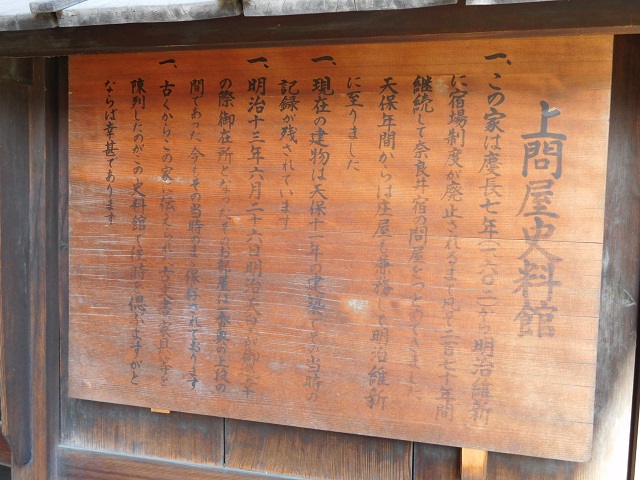 上問屋史料館
一、この家は慶長七年(一六〇二)から明治維新
に宿場制度が廃止されるまで凡そ二百七十年間
継続して奈良井宿の問屋をつとめてきました
天保年間からは庄屋も兼務して明治維新
に至りました
一、現在の建物は天保十一年の建築でその当時の
記録が残されています
一、明治十三年六月二十六日明治天皇が御巡幸
の際御在所となったそのお部屋は一番奥の上段の
間であった 今もその当時のまゝ保存されております
一、古くからこの家に伝えられた古文書や家具等を
陳列したのがこの史料館で往時を偲いますがと
ならば幸甚であります